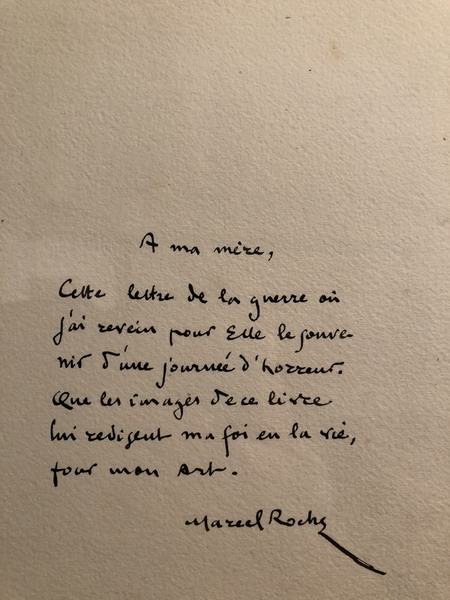 A ma mère,
Cette lettre de la guerre où
j'ai revécu pour Elle le souve
nir d'une journée d'horreur.
Que les images de ce livre
lui redisent ma foi en la vie,
pour mon Art.
Marcel Roche